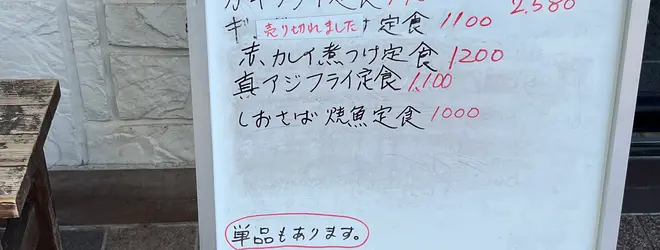 フライ定食
2,580
ギ 売り切れました け定食 1100
赤カレイ煮つけ定食 1200
真アジフライ定食 1,100
しおさば焼魚定食 1000
単品もあります。